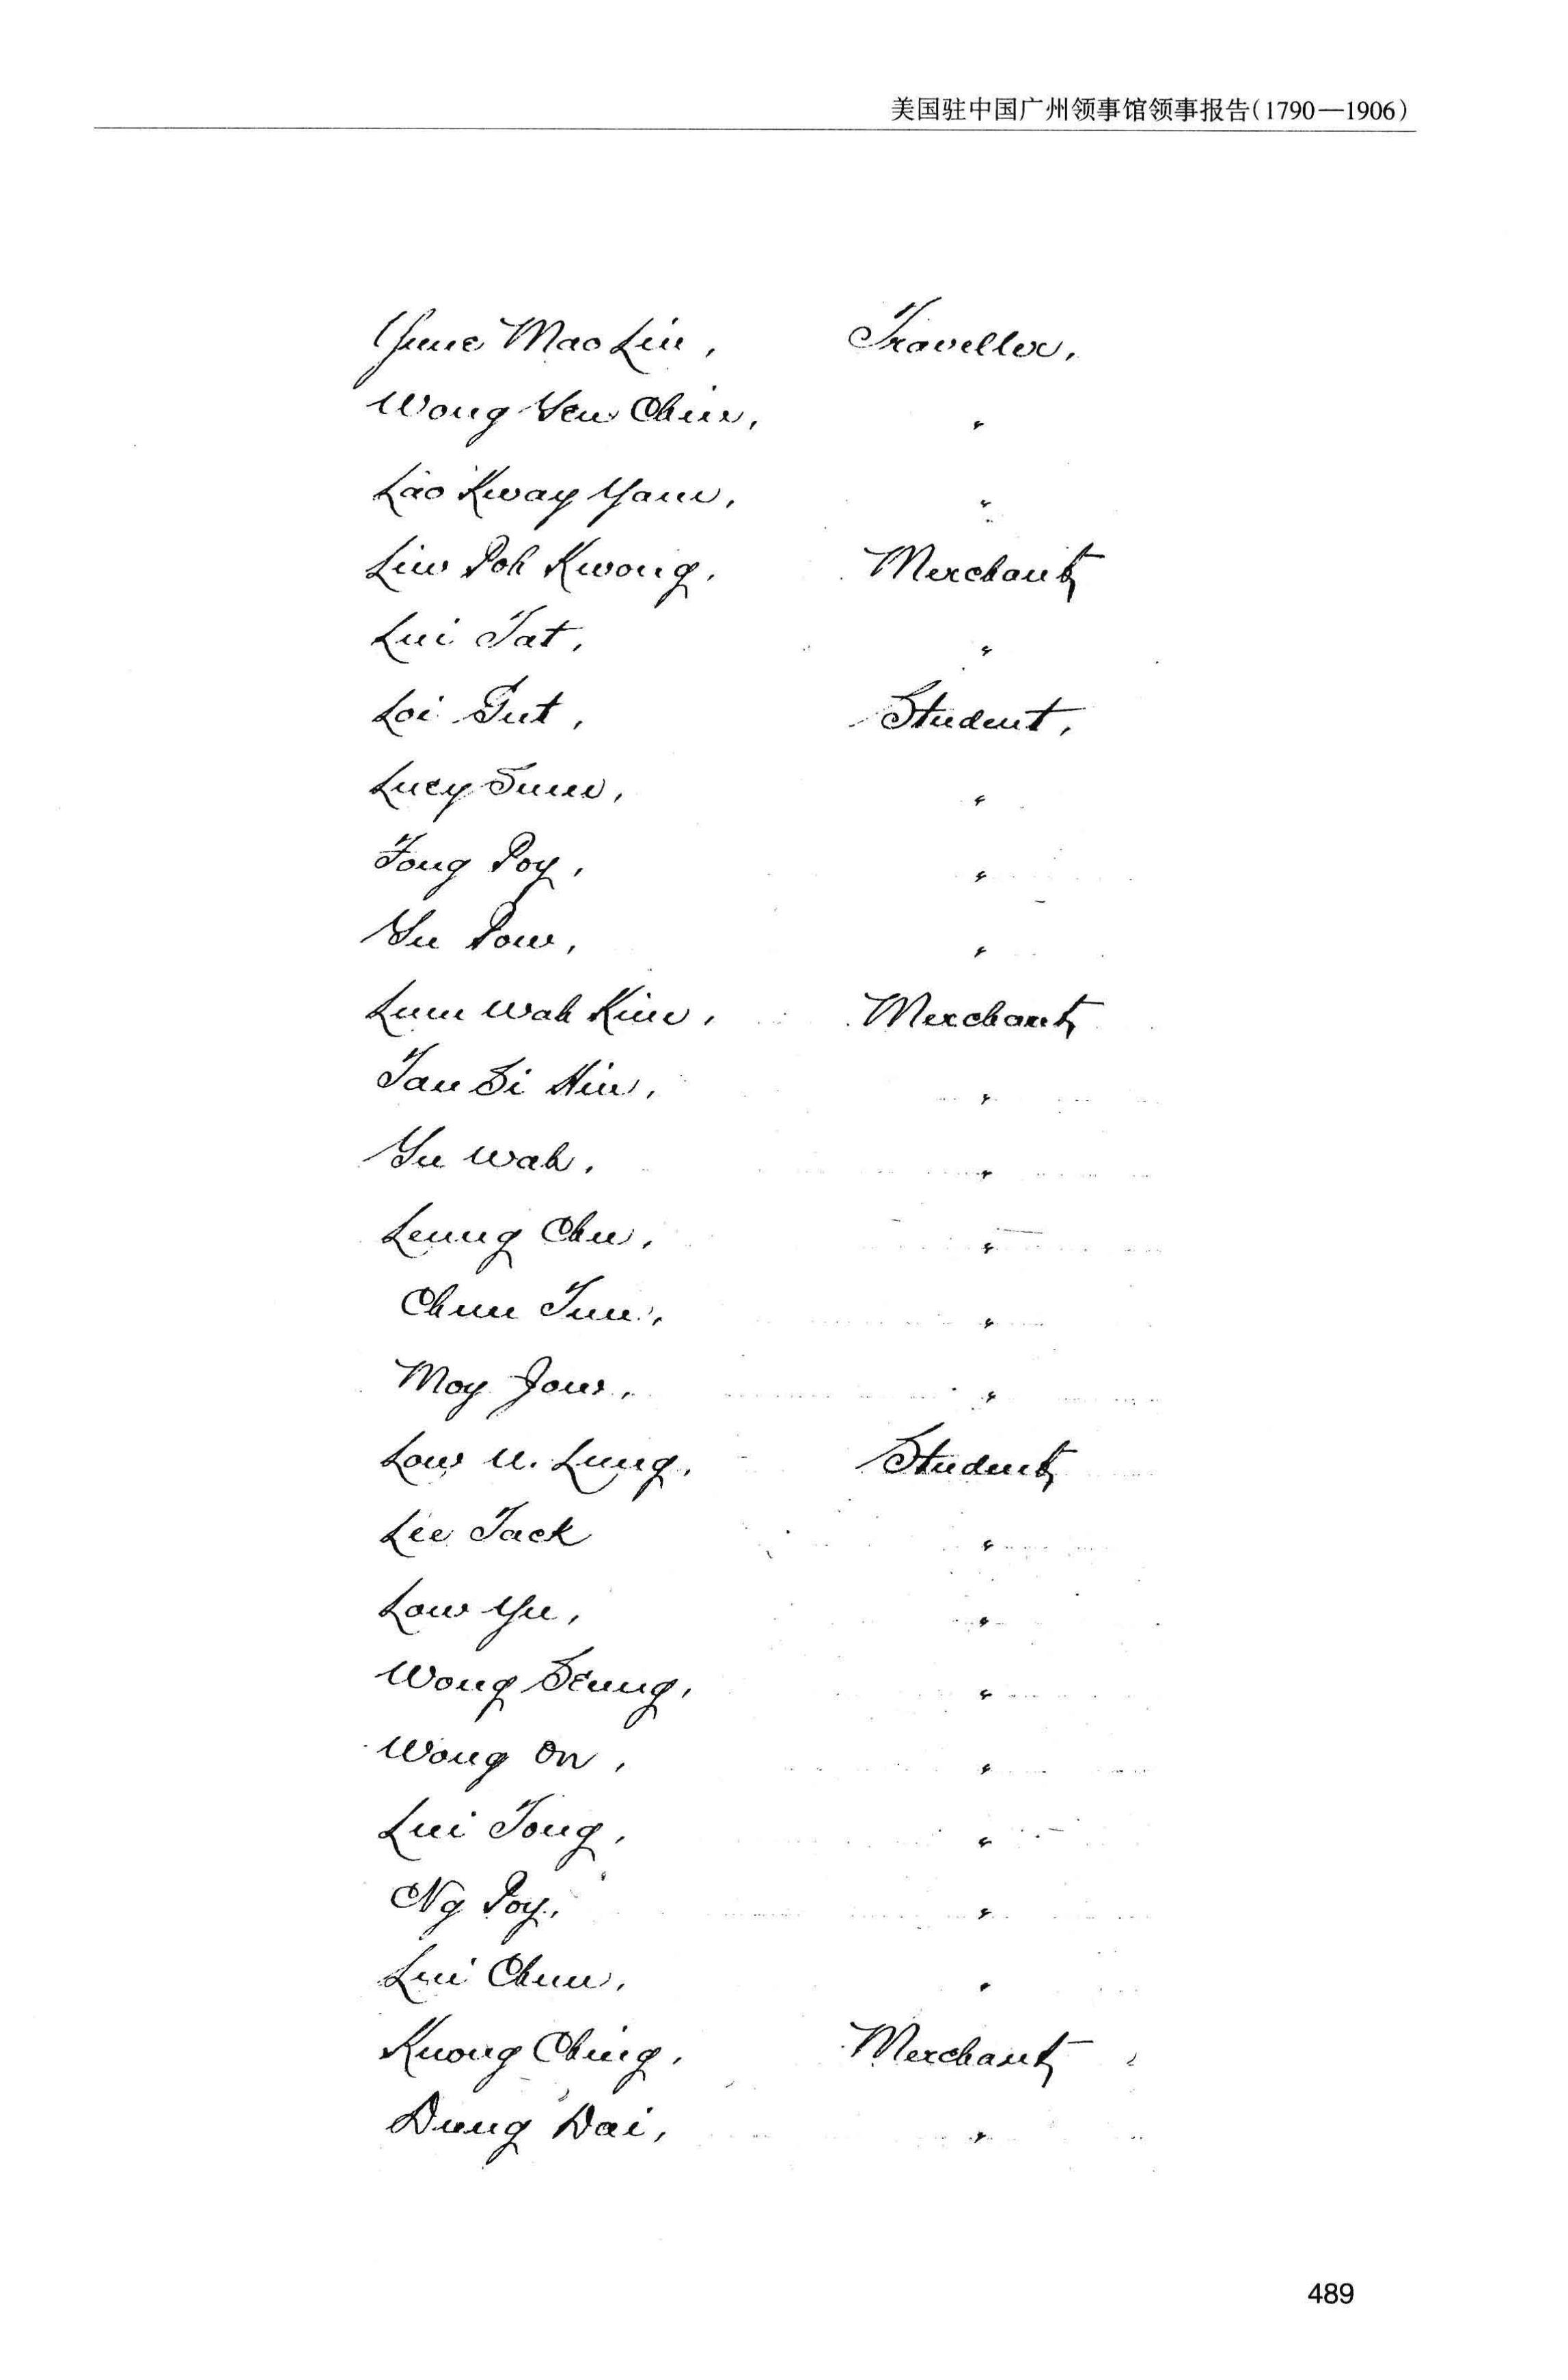 美国驻中国广州领事馆领事报告(1790—1906)
Yune Mao Lin, Traveller,
Wong Yen Chin, "
Lao Kway Yam, "
Liu Poh Kwong, Merchant,
Lui Tat, "
Loi Gut, Student,
Lucy Sum, "
Fong Poy, "
Yu Pow, "
Lum Wah Kim, Merchant,
Tan Si Hin, "
Yu Wah, "
Leung Chu, "
Chun Tun, "
Moy Jow, "
Low U. Lung, Student,
Lee Jack "
Low Yu, "
Wong Seung, "
Wong On, "
Lui Tong, "
Ng Poy, "
Lui Chun, "
Kuong Ching, Merchant,
Dung Dai, "
489